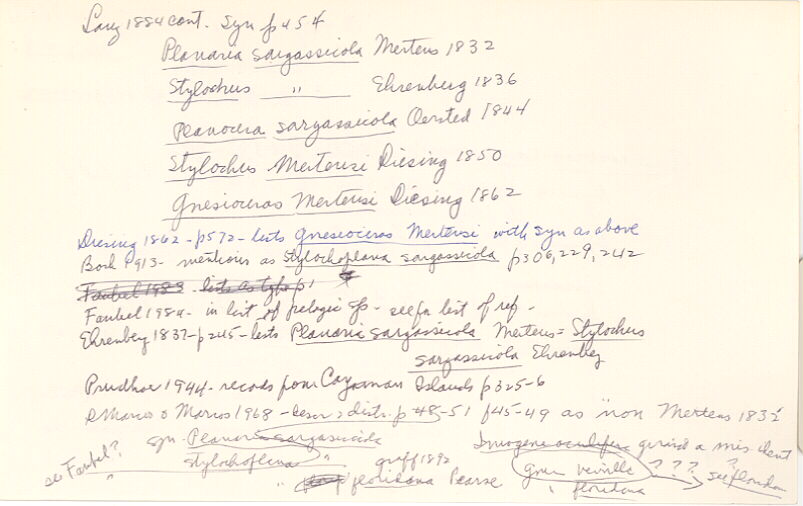 Lang 1884 cont. Syn p 454
Planaria sargassicola Mertens 1832
Stylochus " Ehrenberg 1836
Planocera sargassicola Oersted 1844
Stylochus Mertensi Diesing 1850
Gnesioceros Mertensi Diesing 1862
Diesing 1862 - p572 - lists Gnesioceros Mertensi with syn as above
Bock 1913 - mentions as Stylochoplana sargassicola p306, 229, 242
Faubel 1983 lists as type p
Faubel 1984 - in list of pelagic sp - see for list of ref -
Ehrenberg 1837 - p245 - lists Planaria sargassicola Mertens = Stylochus
sargassicola Ehrenberg
Prudhoe 1944 - records from Cayman Islands p325-6
& Marcus 1968 - descr, distr. p 48-51 f45-49 as "non Mertens 1832
see Faubel? syn - Planaria sargassicola Imogene oculifera girard a mis ident
" Stylochoplana " graff 1892 ? ? ? ? see floridana
" floridana Pearse " floridana